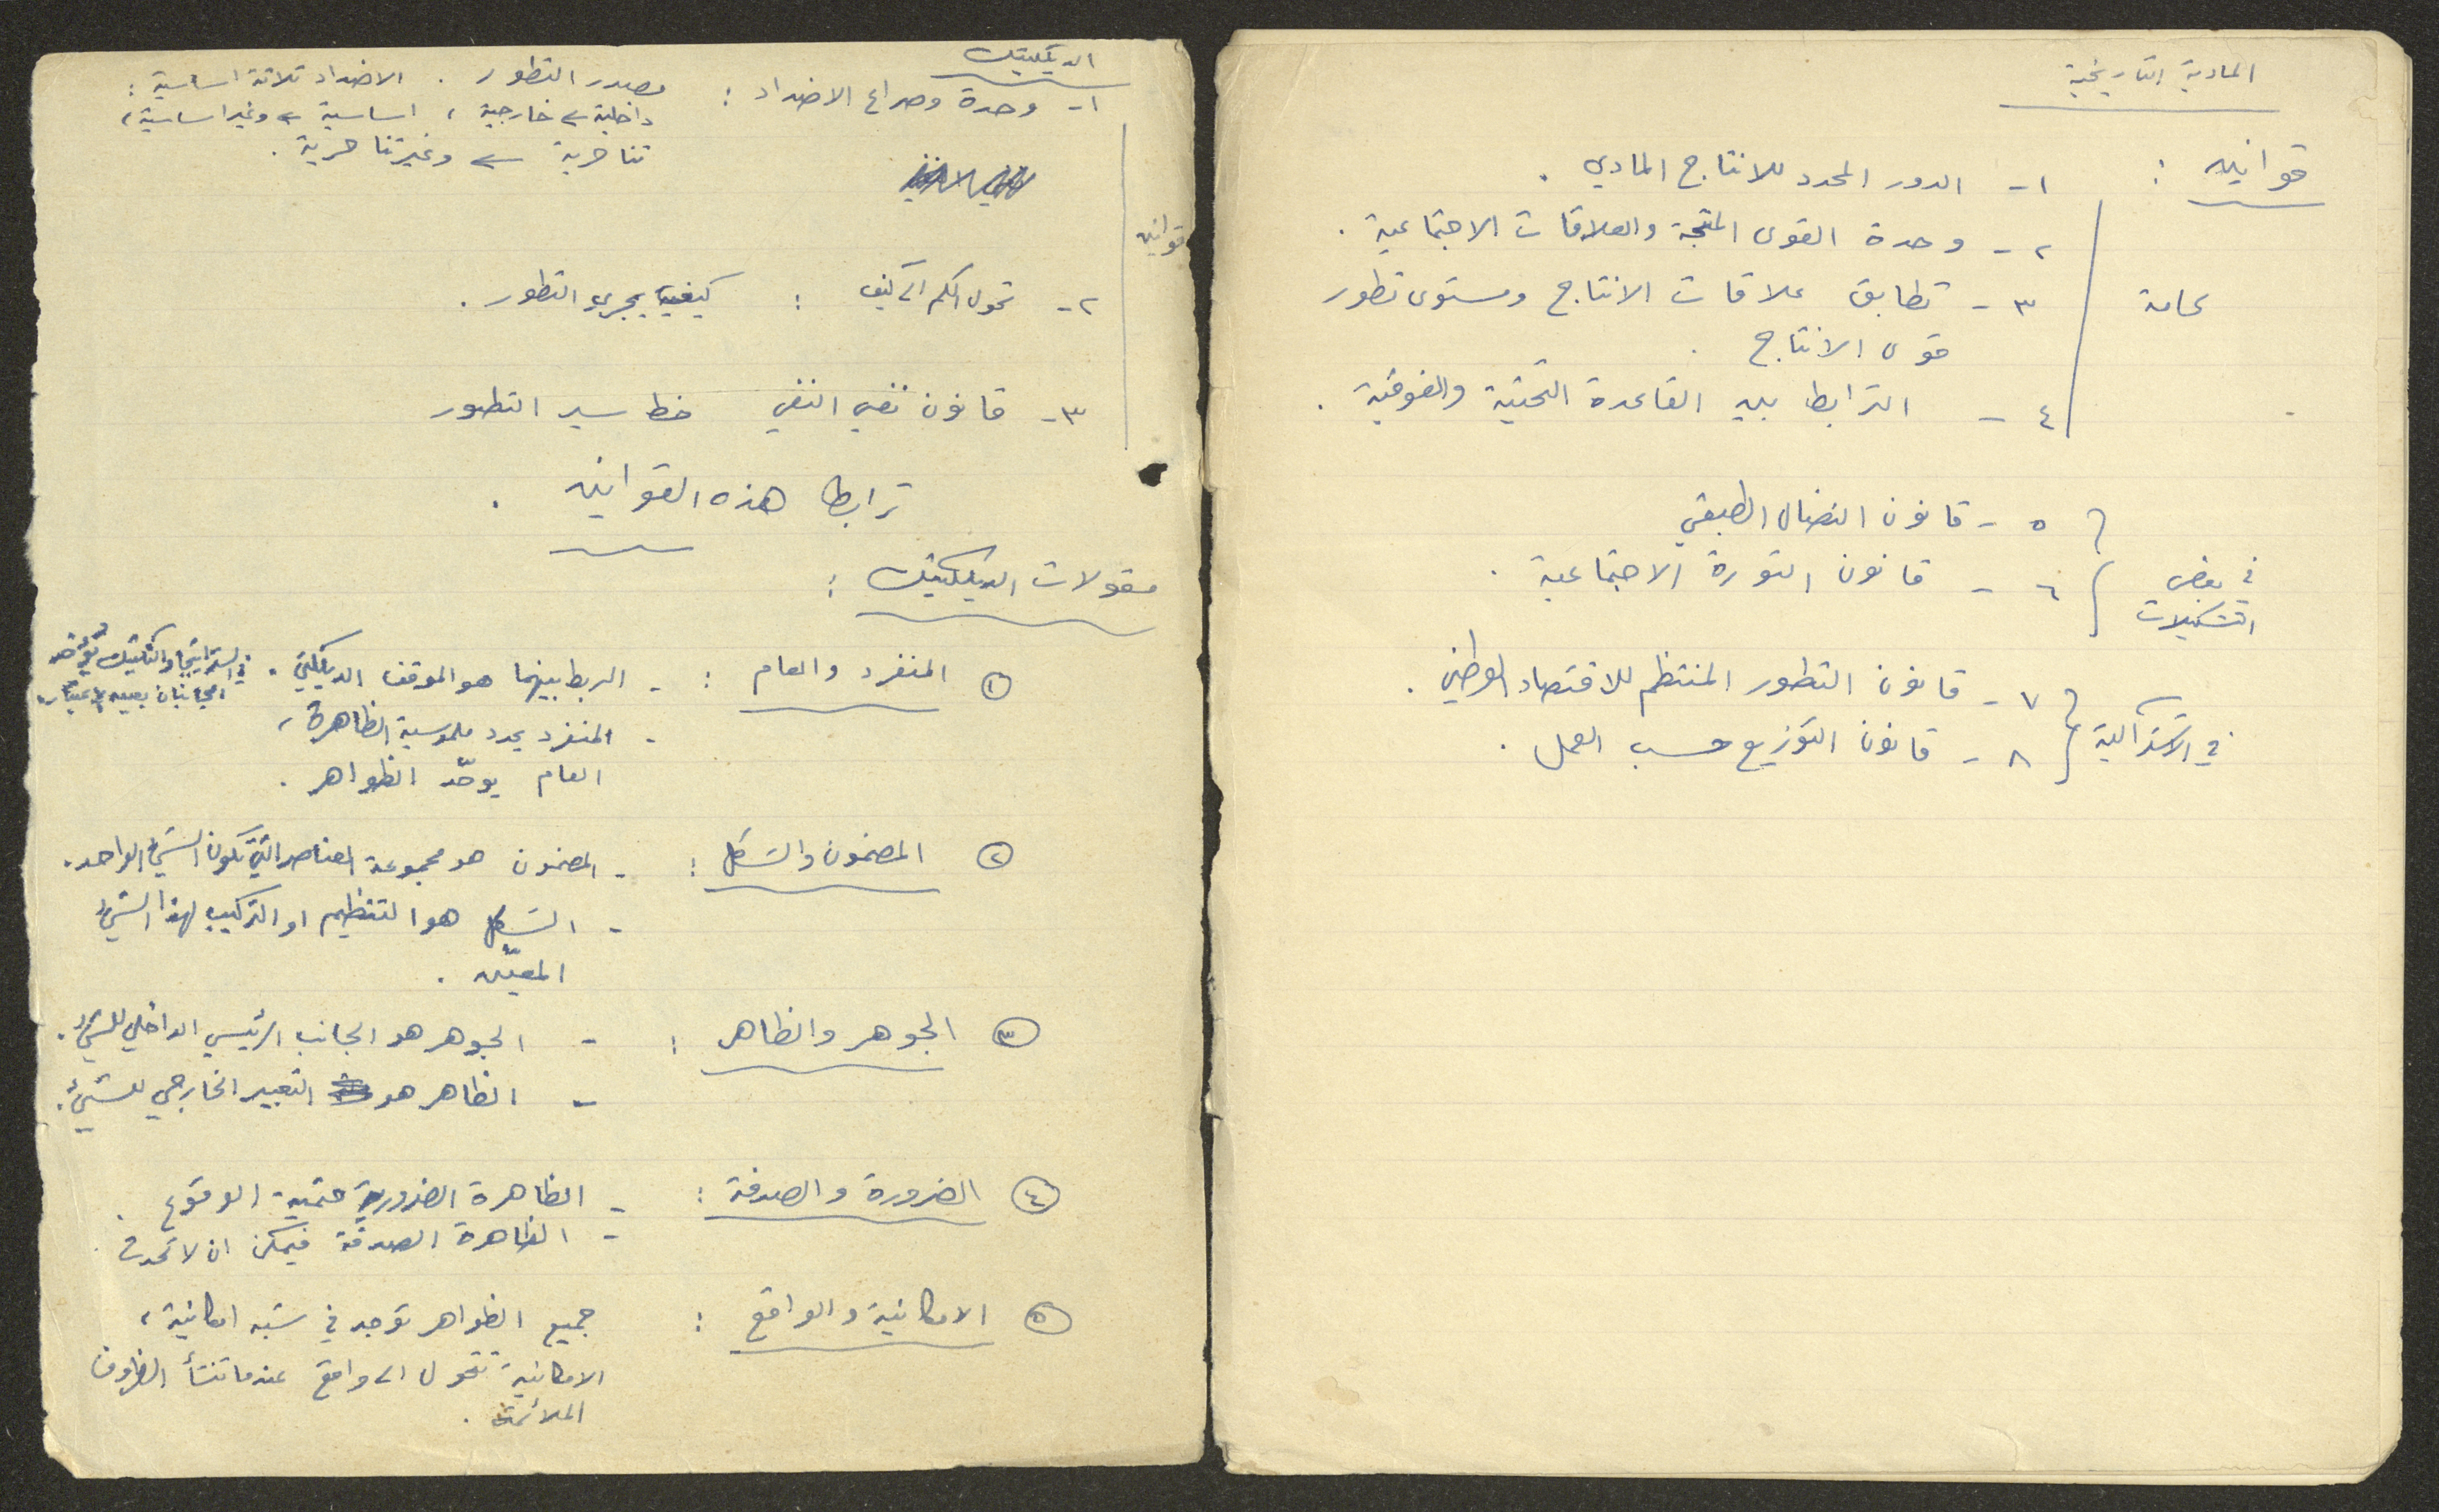 المادية التاريخية
قوانين :
١- الدور المحدد للانتاج المادي .
٢- وحدة القوى المنتجة والعلاقات الاجتماعية .
عامة
٣- تطابق علاقات الانتاج ومستوى تطور
قوى الانتاج .
٤- الترابط بين القاعدة التحتية والفوقية .
٥- قانون النضال الطبقي
في بعض التشكيلات
٦- قانون الثورة الاجتماعية .
٧- قانون التطور المنتظم للاقتصاد الوطني .
في الاشتراكية
٨- قانون التوزيع حسب العمل .
الديكلتيك
١- وحدة وصراع الاضداد : مصدر التطور . الاضداد ثلاثة اساسية :
داخلية ے خارجية ، اساسية ے وغير اساسية ،
تناحرية ے وغير تناحرية .
قوانين
٢- تحول الكم الى كيف : كيفية يجري التطور .
٣- قانون نفي النفي خط سير التطور
ترابط هذه القوانين .
مقولات الديكلتيك :
١ المنفرد والعام : - الربط بينهما هو الموقف الديكلتي . في الستراتيجيا والتكتيك تؤخذ
الجانبان بعين الاعتبار .
- المنفرد يحدد ملموسية الظاهرة ،
العام يوحّد الظواهر .
٢ المضمون والشكل : - المضمون هو مجموعة العناصر التي تكون الشيء الواحد .
- الشكل هو التنظيم او التركيب لهذا الشيء
المعيّن .
٣ الجوهر والظاهر : - الجوهر هو الجانب الرئيسي الداخلي للشيء .
- الظاهر هو التعبير الخارجي للشيء .
٤ الضرورة والصدفة : - الظاهرة الضرورية حتمية الوقوع .
- الظاهرة الصدفة فيمكن ان لا تحدث .
٥ الامكانية والواقع : جميع الظواهر توجد في شبه امكانية ،
الامكانية تتحول الى واقع عندما تنشأ الظروف
الملائمة .